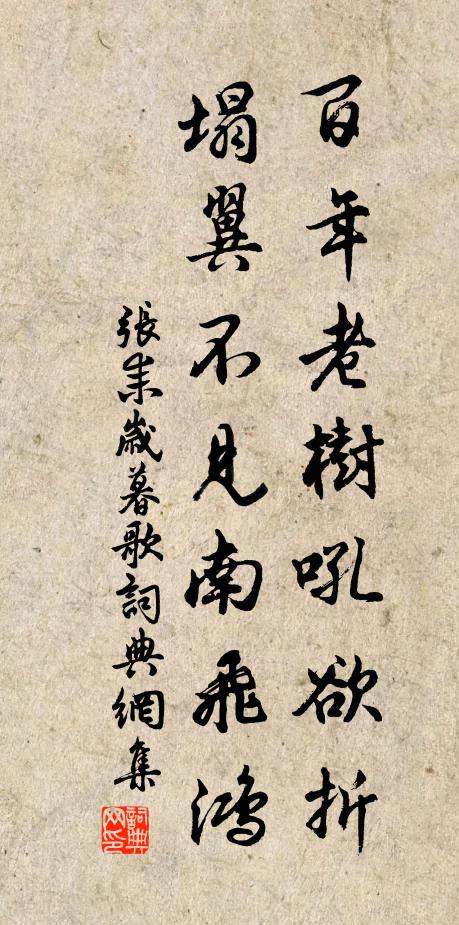 百年老樹吼欲折
塌翼不見南飛鴻
張耒歲暮歌詞典網集
詞典网印